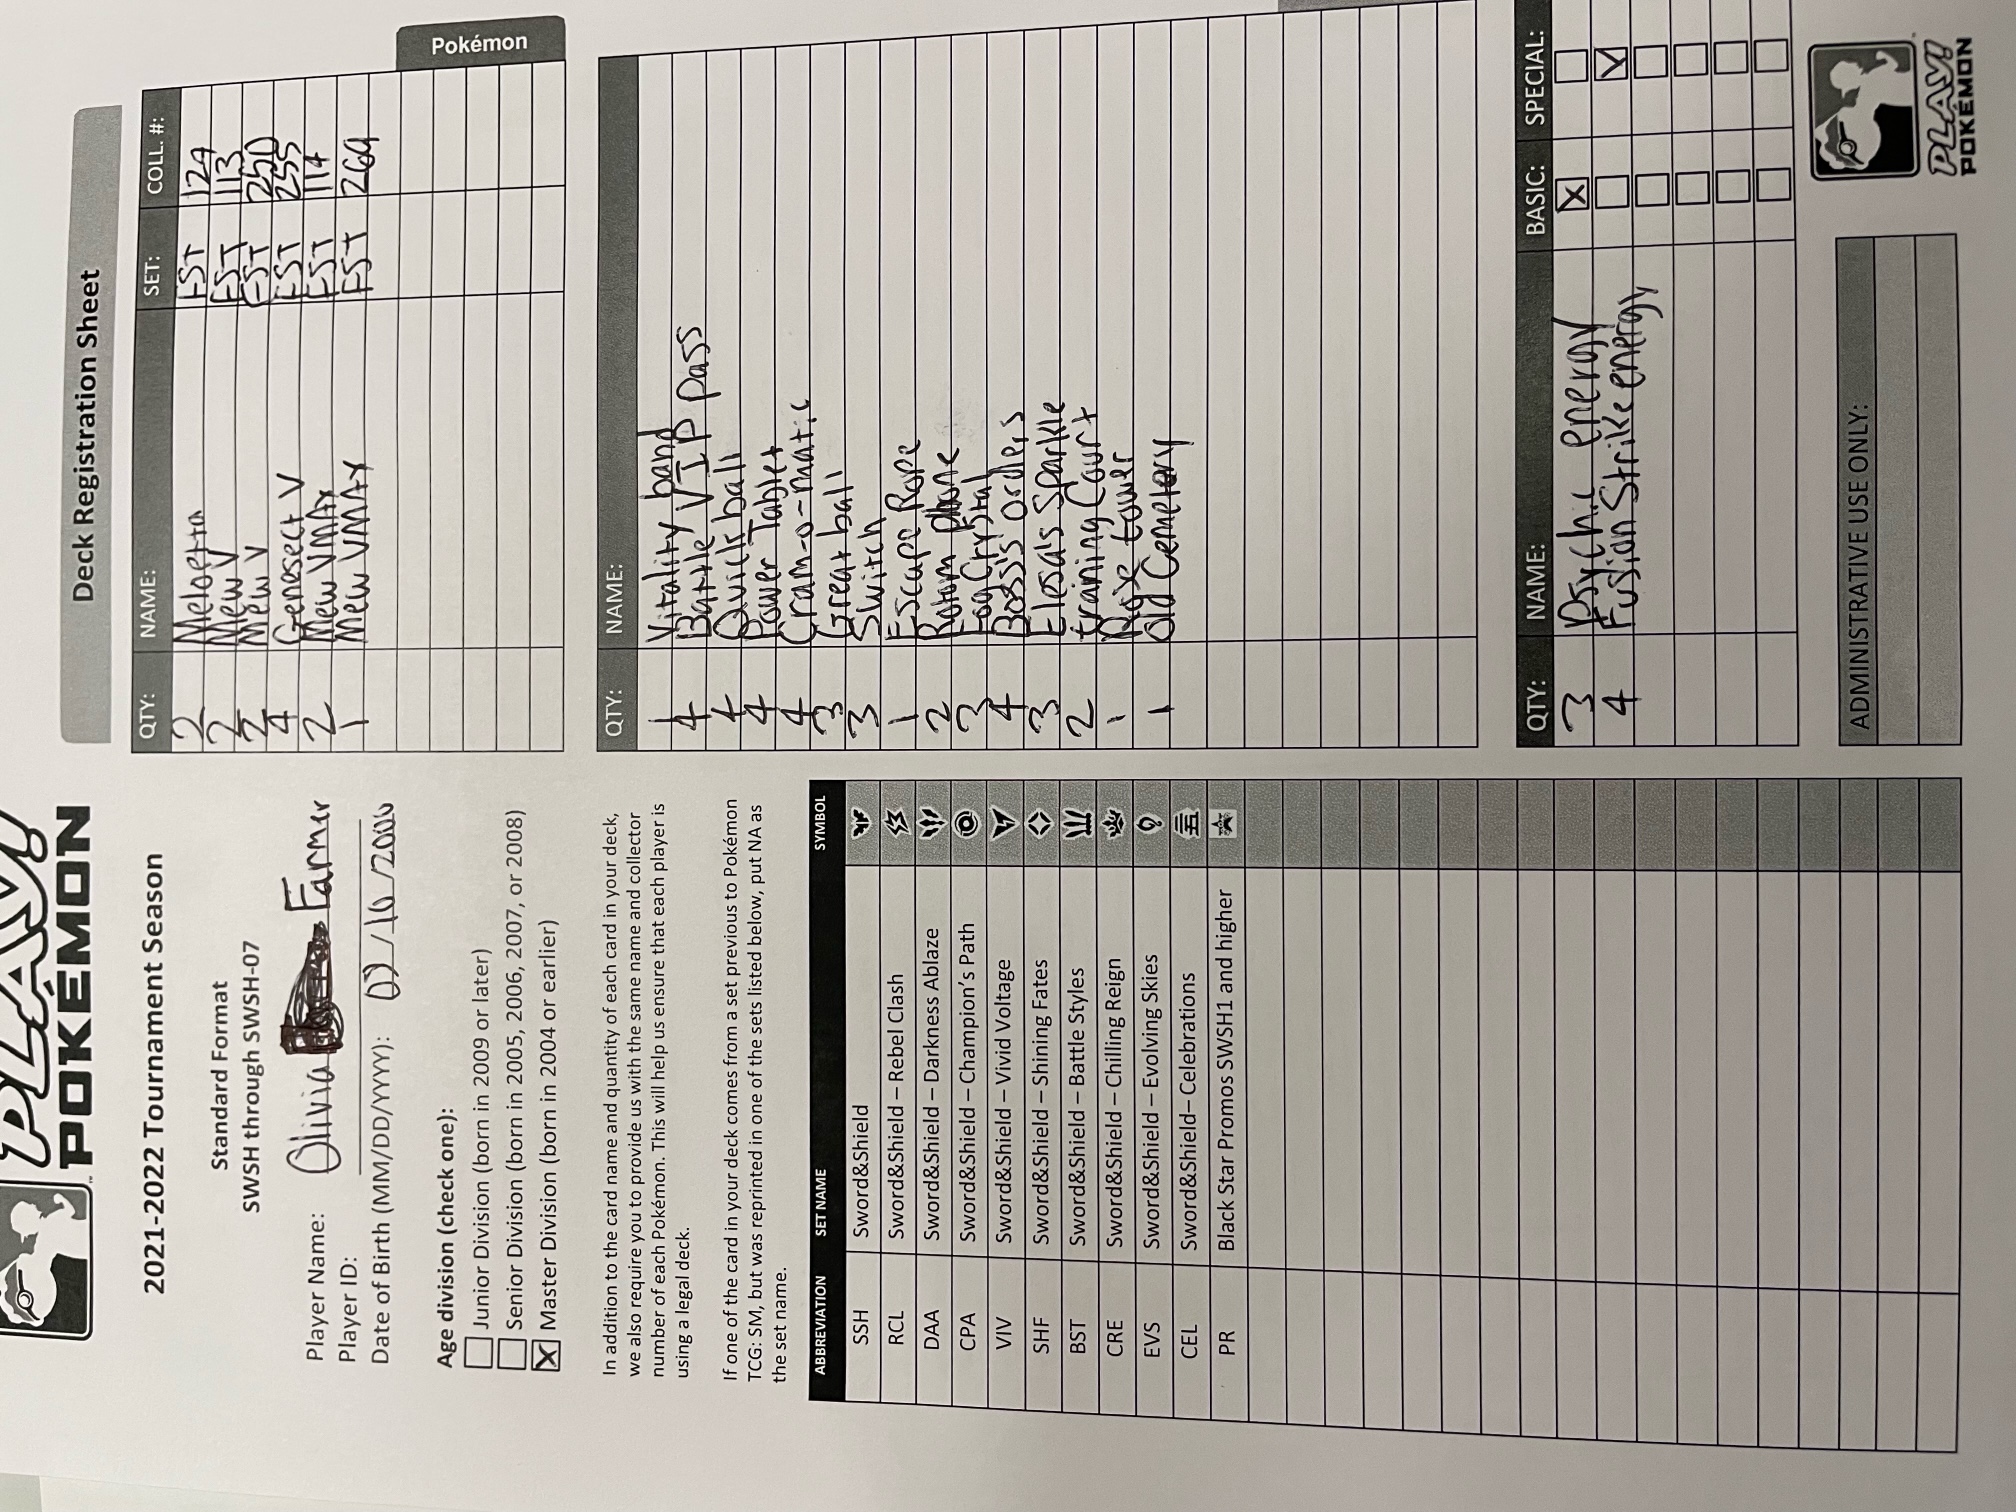 PLAY!
POKÉMON
2021-2022 Tournament Season
Standard Format
SWSH through SWSH-07
Player Name: Olivia Farmer
Player ID:
Date of Birth (MM/DD/YYYY): 07/10/2000
Age division (check one):
Junior Division (born in 2009 or later)
Senior Division (born in 2005, 2006, 2007, or 2008)
Master Division (born in 2004 or earlier)
In addition to the card name and quantity of each card in your deck,
we also require you to provide us with the same name and collector
number of each Pokémon. This will help us ensure that each player is
using a legal deck.
If one of the card in your deck comes from a set previous to Pokémon
TCG: SM, but was reprinted in one of the sets listed below, put NA as
the set name.
ABBREVIATION SET NAME SYMBOL
SSH Sword&Shield
RCL Sword&Shield – Rebel Clash
DAA Sword&Shield – Darkness Ablaze
CPA Sword&Shield – Champion's Path
VIV Sword&Shield – Vivid Voltage
SHF Sword&Shield – Shining Fates
BST Sword&Shield – Battle Styles
CRE Sword&Shield – Chilling Reign
EVS Sword&Shield – Evolving Skies
CEL Sword&Shield– Celebrations
PR Black Star Promos SWSH1 and higher
Deck Registration Sheet
QTY: NAME: SET: COLL. #:
2 Meloetta FST 124
2 Mew V FST 113
2 Mew V FST 250
4 Genesect V FST 255
2 Mew VMAX FST 114
1 Mew VMAX FST 269
Pokémon
QTY: NAME:
1 Vitality band
4 Battle VIP pass
4 Quick ball
4 Power Tablet
4 Cram-o-matic
3 Great ball
3 Switch
1 Escape Rope
2 Rotom phone
3 Fog Crystal
4 Boss's orders
3 Elesa's Sparkle
2 training Court
1 Rose tower
1 Old Cemetery
QTY: NAME: BASIC: SPECIAL:
3 Psychic energy
4 Fusion Strike energy
ADMINISTRATIVE USE ONLY:
PLAY!
POKÉMON